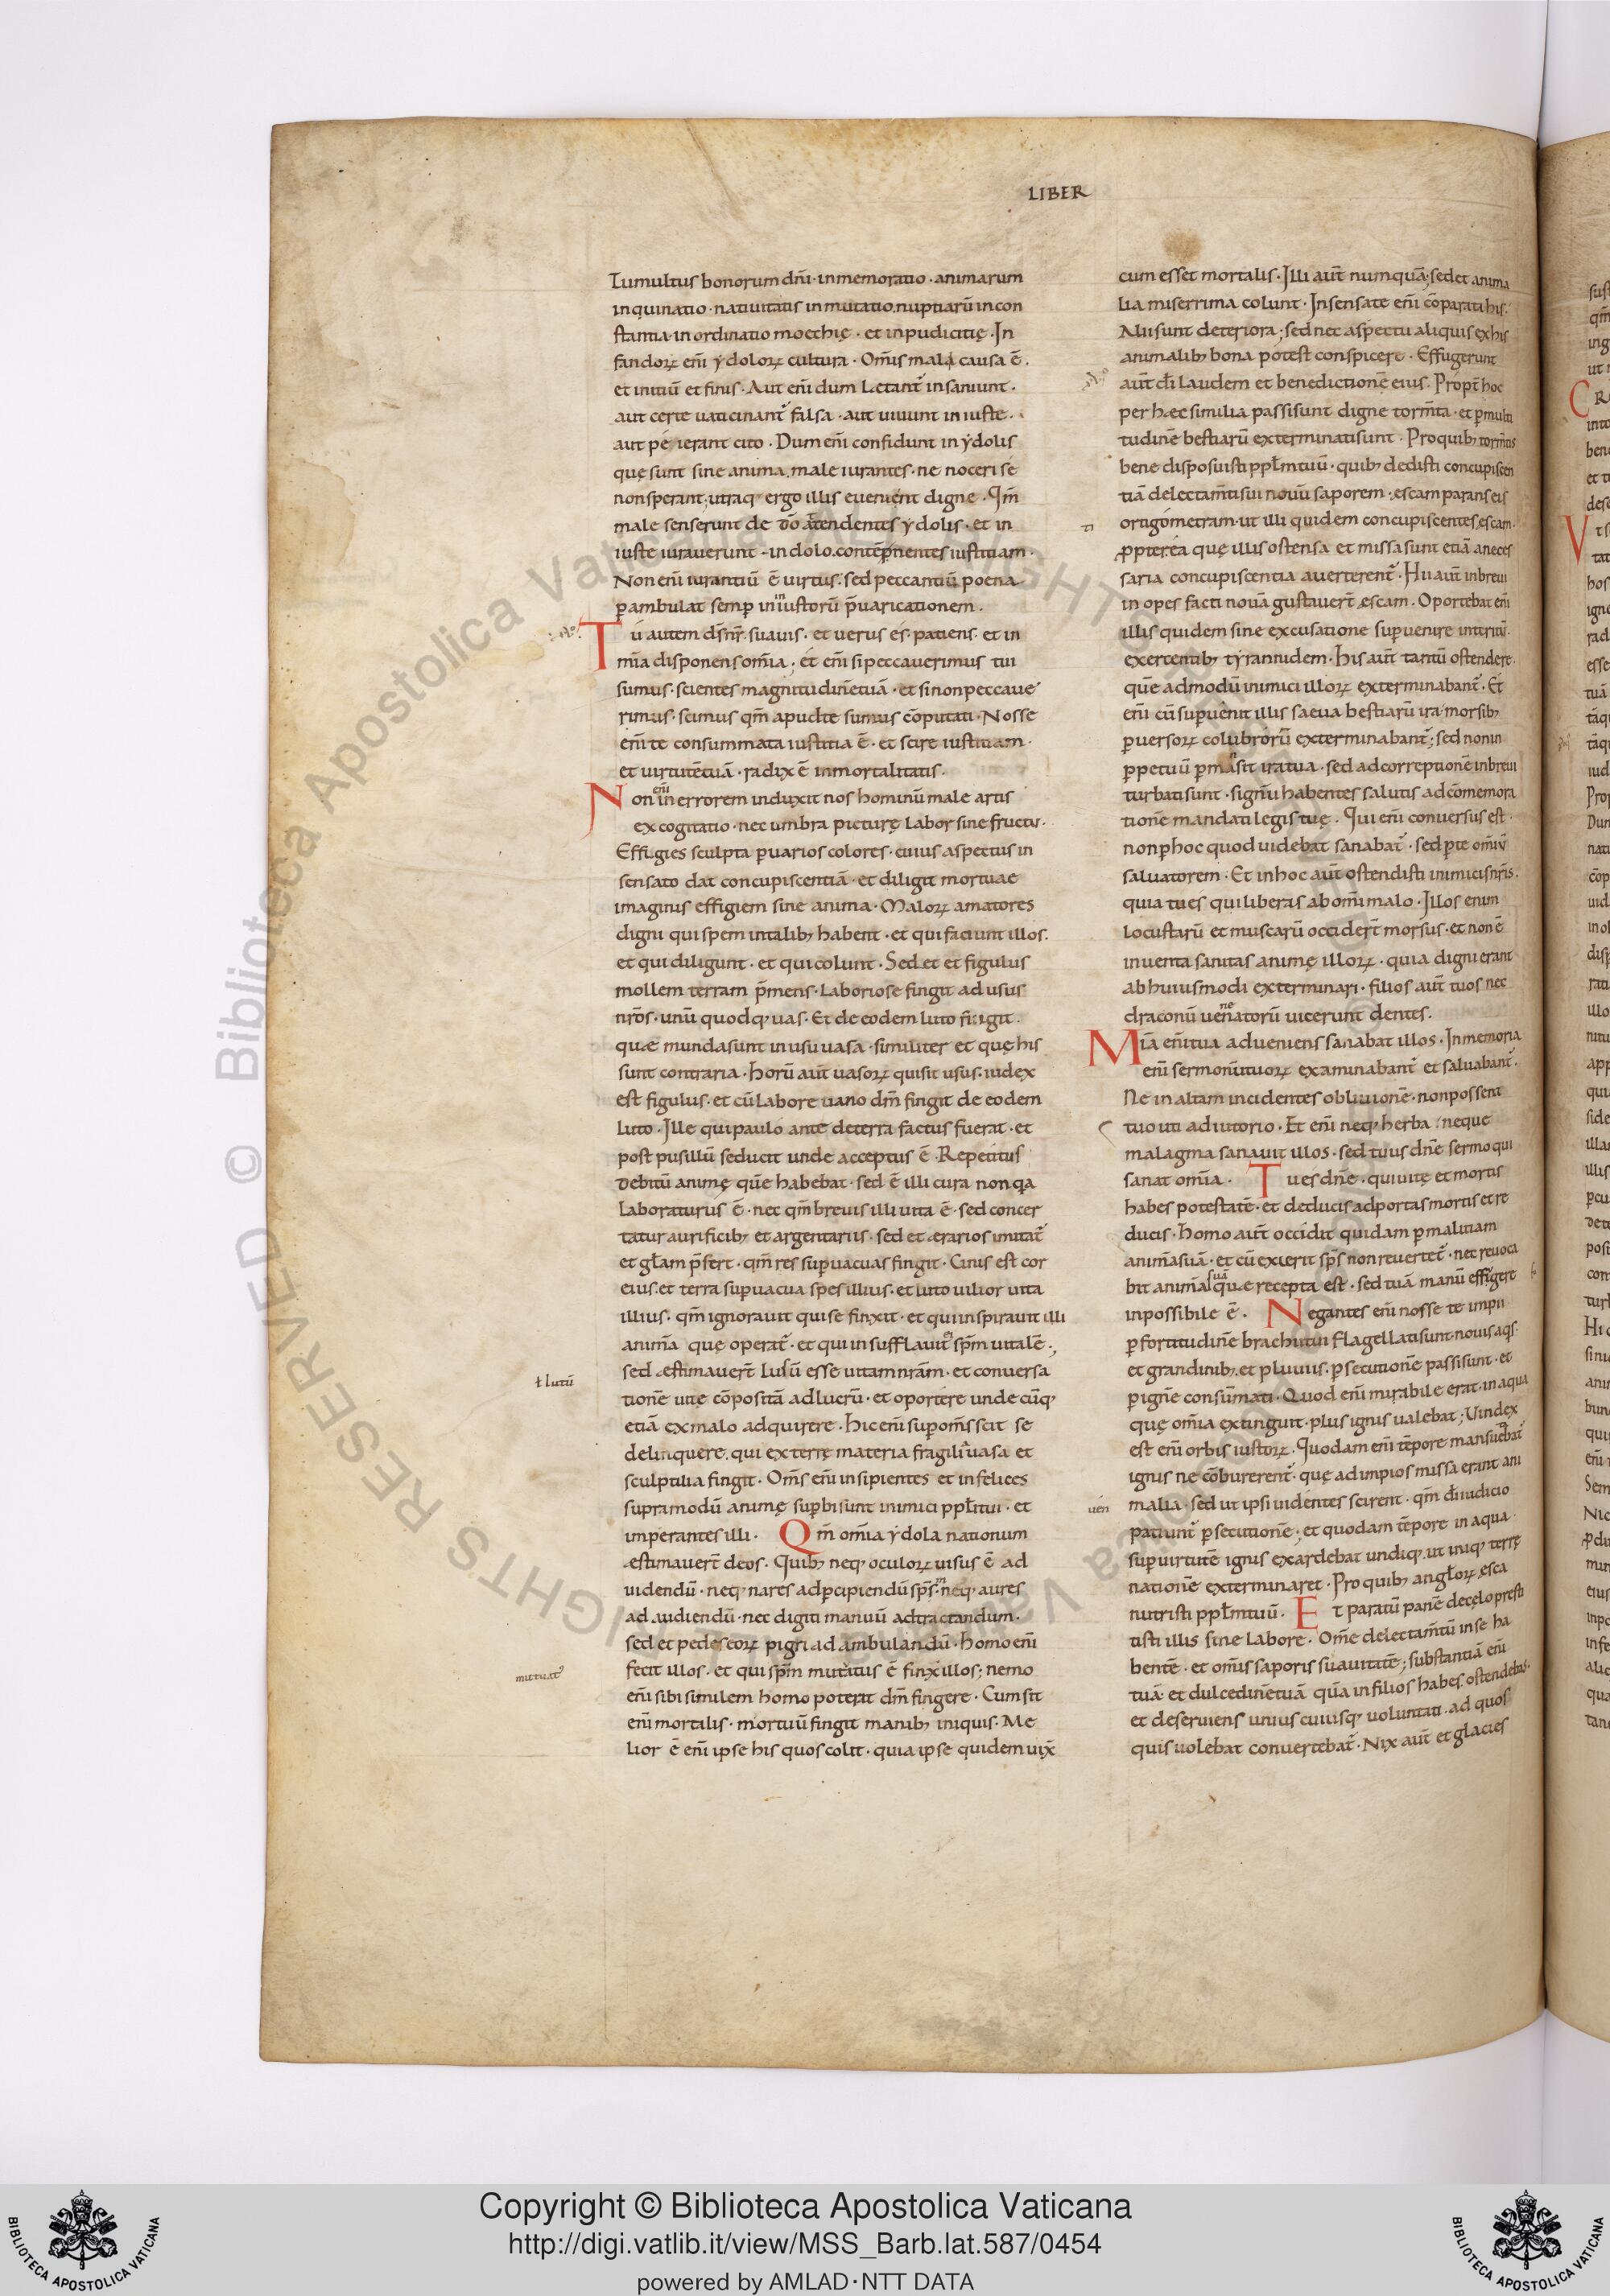 LIBER
Tumultus bonorum dñi· inmemoratio · animarum
inquinatio · nativitatis inmutatio nuptiarū incon
stantia· inordinatio moechię · et inpudicitię · In
fandoꝝ eñi ydoloꝝ cultura · Om̄is mali causa ē.
et initiū et finis · Aut eñi dum Letant᷑ insaniunt .
aut certe uaticinant᷑ falsa · aut uiuunt in iuste .
aut pe ierant cito · Dum eñi confidunt in ydolis
quę sunt sine anima. male iurantes · ne noceri se
non sperant· utraqꝫ ergo illis euenient digne · Qm̄
male senserunt de dō attendentes ydolis · et in
iuste iurauerunt · in dolo. contēpnentes iustitiam ·
Non eñi iurantiū ē uirtus: sed peccantiū poena
ꝑambulat semꝑ in iniustorū p̄uaricationem .
Tu autem d̄s nr̄ · suauis · et uerus es· patiens · et in
mīa disponens om̄ia ; et eñi si peccauerimus tui
sumus · scientes magnitudinē tuā · et si non peccaue
rimus · scimus qm̄ apud te sumus cōputati · Nosse
eñi te consummata iustitia ē · et scire iustitiam ·
et uirtutē tuā · radix ē inmortalitatis.
eñi
Non in errorem induxit nos hominū male artis
excogitatio · nec umbra picturę labor sine fructu ·
Effigies sculpta ꝑ uarios colores · cuius aspectus in
sensato dat concupiscentiā · et diligit mortuae
imaginis effigiem sine anima · Maloꝝ amatores
digni qui spem in talibꝫ habent · et qui faciunt illos.
et qui diligunt · et qui colunt · Sed et et figulus
mollem terram p̄mens · laboriose fingit ad usus
nr̄os · unū quodqꝫ uas · Et de eodem luto fingit .
quae munda sunt in usu uasa · similiter et quę his
sunt contraria · horū aut̄ uasoꝝ quis sit usus · iudex
est figulus · et cū labore uano dm̄ fingit de eodem
luto · Ille qui paulo ante de terra factus fuerat · et
post pusillū se ducit unde acceptus ē · Repetitus
debitū animę quē habebat · sed ē illi cura non qa
laboraturus ē · nec qm̄ breuis illi uita ē · sed concer
tatur aurificibꝫ et argentariis · sed et aerarios imitat᷑
et gl̄am p̄fert · qm̄ res suꝑuacuas fingit · Cinis est cor
eius. et terra suꝑuacua spes illius · et luto uilior uita
illius · qm̄ ignorauit qui se finxit · et qui inspirauit illi
animā quę operat᷑ · et qui insufflauit ei sp̄m uitalē ;
sed aestimauert̄ lusū esse uitam nr̄am · et conuersa
ł lutū
tionē uitę cōpositā ad lucrū · et oportere unde cūqꝫ
etiā ex malo adquirere · Hic eñi suꝑ om̄s scit se
delinquere. qui ex terrę materia fragilia uasa et
sculptilia fingit · Om̄s eñi insipientes et infelices
supra modū animę suꝑbi sunt inimici ppl̄i tui · et
imperantes illi · Qm̄ om̄ia ydola nationum
aestimauert̄ deos · Quibꝫ neqꝫ oculoꝝ uisus ē ad
uidendū · neqꝫ nares ad ꝑcipiendū sp̄m · neqꝫ aures
ad audiendū · nec digiti manuū ad tractandum ·
sed et pedes eoꝝ pigri ad ambulandū · homo eñi
fecit illos · et qui sp̄m mutatus ē finxit illos; nemo
eñi sibi similem homo poterit dm̄ fingere · Cum sit
eñi mortalis · mortuū fingit manibꝫ iniquis · Me
lior ē eñi ipse his quos colit · quia ipse quidem uix̄
cum esset mortalis · Illi aut̄ numquā; sed et anima
lia miserrima colunt · Insensate eñi cōparati his ·
Alii sunt deteriora ; sed nec aspectu aliquis ex his
animalibꝫ bona potest conspicere · Effugerunt
aut̄ d̄i laudem et benedictionē eius · Propt̄ hoc
per haec similia passi sunt digne torm̄ta · et ꝑ multi
tudinē bestiarū exterminati sunt · Pro quibꝫ torm̄tis
bene disposuisti ppl̄m tuū · quibꝫ dedisti concupiscen
tiā delectam̄ti sui nouū saporem · escam parans eis
ortigometram· ut illi quidem concupiscentes escam ·
ꝓpter ea quę illis ostensa et missa sunt etiā a neces
saria concupiscentia auerterent᷑ · Hii aut̄ in breui
in opes facti nouā gustauert̄ escam . Oportebat eñi
illis quidem sine excusatione suꝑuenire interitū ·
exercentibꝫ tyrannidem · His aut̄ tantū ostendere ·
quē admodū inimici illoꝝ exterminabant᷑ · Et
eñi cū suꝑuenit illis saeua bestiarū ira · morsibꝫ
ꝑuersoꝝ colubrorū exterminabant᷑; sed non in
ꝑpetuū ꝑmansit ira tua · sed ad correptionē in breui
turbati sunt · signū habentes salutis ad cōmemora
tionē mandati legis tuę · Qui eñi conuersus est ·
non ꝑ hoc quod uidebat sanabat᷑ · sed ꝑ te om̄iū
saluatorem · Et in hoc aut̄ ostendisti inimicis nr̄is ·
quia tu es qui liberas ab om̄i malo · Illos enim
locustarū et muscarū occidert̄ morsus · et non ē
inuenta sanitas animę illoꝝ · quia digni erant
ab huiusmodi exterminari · filios aut̄ tuos nec
draconū uenenatorū uicerunt dentes.
Mīa eñi tua adueniens sanabat illos · In memoria
eñi sermonū tuoꝝ examinabant᷑ et saluabant᷑ ·
Ne in altam incidentes obliuionē · non possent
tuo uti adiutorio · Et eñi neqꝫ herba · neque
malagma sanauit illos · sed tuus dn̄e sermo qui
sanat om̄ia · Tu es dn̄e · qui uitę et mortis
habes potestatē · et deducis ad portas mortis et re
ducis · homo aut̄ occidit quidam ꝑ malitiam
animā suā · et cū exierit sp̄s non reuertet᷑ · nec reuoca
bit animā suā quae recepta est · sed tuā manū effugere
inpossibile ē · Negantes eñi nosse te impii
ꝑ fortitudinē brachii tui flagellati sunt· nouis aqis ·
et grandinibꝫ et pluuiis · ꝑsecutionē passi sunt · et
ꝑ ignē consūmati · Quod eñi mirabile erat · in aqua
quę om̄ia extinguit · plus ignis ualebat ; Uindex
est eñi orbis iustoꝝ · Quodam eñi tēpore mansuebat᷑
ignis ne cōburerent᷑ · quę ad impios missa erant ani
malia · sed ut ipsi uidentes scirent · qm̄ d̄i iudicio
patiunt᷑ ꝑsecutionē ; et quodam tēpore in aqua
suꝑ uirtutē ignis exardebat undiqꝫ ut iniqꝫ terrę
nationē exterminaret · Pro quibꝫ angl̄oꝝ esca
nutristi ppl̄m tuū · Et paratū panē de cęlo presti
tisti illis sine labore · Om̄e delectam̄tū in se ha
bentē · et om̄is saporis suauitatē ; substantiā eñi
tuā et dulcedinē tuā quā in filios habes. ostendebas·
et deseruiens unius cuiusqꝫ uoluntati · ad quos
quis uolebat conuertebat᷑ · Nix aut̄ et glacies
Copyright © Biblioteca Apostolica Vaticana
http://digi.vatlib.it/view/MSS_Barb.lat.587/0454
powered by AMLAD·NTT DATA
BIBLIOTECA APOSTOLICA VATICANA
BIBLIOTECA APOSTOLICA VATICANA
© Biblioteca Apostolica Vaticana ALL RIGHTS RESERVED